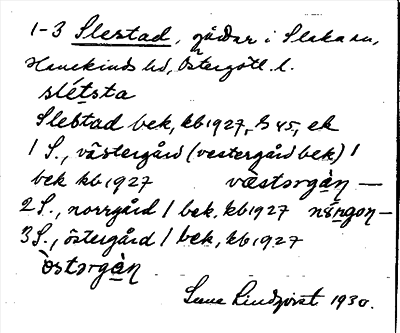 1-3 Slestad, gårdar i Slaka sn,
Hanekinds hd, Östergötl. l.
slétsta
Slestad bek, kb 1927, § 45, ek
1 S., västergård (vestergård bek) /
bek kb 1927 västorgàn —
2 S., norrgård / bek. kb 1927 nŏngon —
3 S., östergård / bek, kb 1927
òstorgàn
Sune Lindqvist 1930.